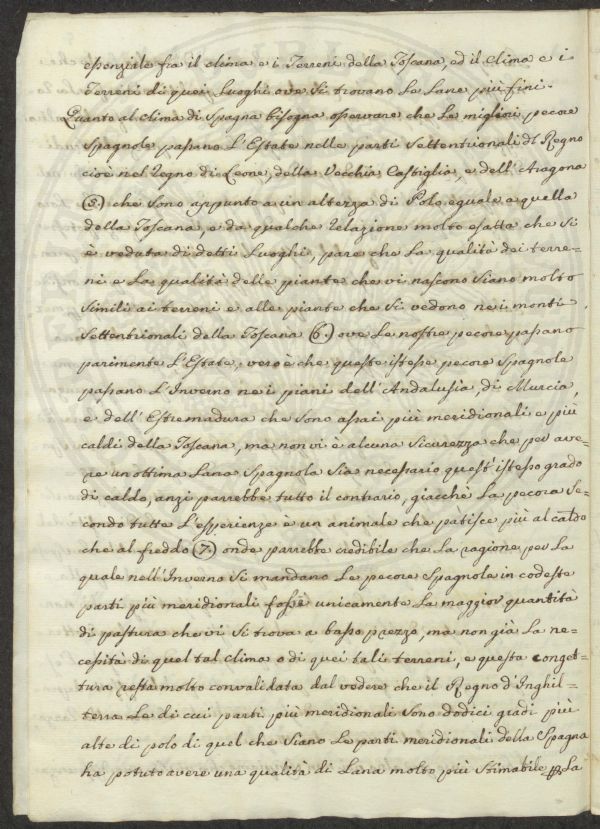 essenziale fra il clima e i Terreni della Toscana, ed il Clima e i
Terreni di quei Luoghi ove Si trovano Le Lane più fini.
Quanto al Clima di Spagna bisogna osservare che Le migliori pecore
Spagnole passano L'Estate nelle parti Settentrionali dl Regno
cioè nel Regno di Leone, della Vecchia Castiglia, e dell'Aragona
(5.) che Sono appunto a un altezza di Polo eguale a quella
della Toscana, e da qualche Relazione molto esatta che Si
è veduta di detti Luoghi, pare che La qualità dei terre=
ni e La qualità delle piante che vi nascono Siano molto
Simili ai terreni e alle piante che Si vedono nei monti
Settentrionali della Toscana (6.) ove Le nostre pecore passano
parimente L'Estate, vero è che queste istesse pecore Spagnole
passano L'Inverno nei piani dell'Andalusia, di Murcia,
e dell'Estremadura che Sono assai più meridionali e più
caldi della Toscana, ma non vi è alcuna Sicurezza che per ave=
re un ottima Lana Spagnola Sia necessario quest'istesso grado
di caldo, anzi parrebbe tutto il contrario, giacchè La pecora Se=
condo tutte L'esperienze è un animale che patisce più al caldo
che al freddo (7.) onde parrebbe credibile che La ragione per La
quale nell'Inverno Si mandano Le pecore Spagnole in codeste
parti più meridionali fosse unicamente La maggior quantità
di pastura che vi Si trova a basso prezzo, ma non già La ne=
cessità di quel tal Clima o di quei tali terreni, e questa conget=
tura resta molto convalidata dal vedere che il Regno d'Inghil=
terra Le di cui parti più meridionali Sono dodici gradi più
alte di polo di quel che Siano Le parti meridionali della Spagna
ha potuto avere una qualità di Lana molto più Stimabile La